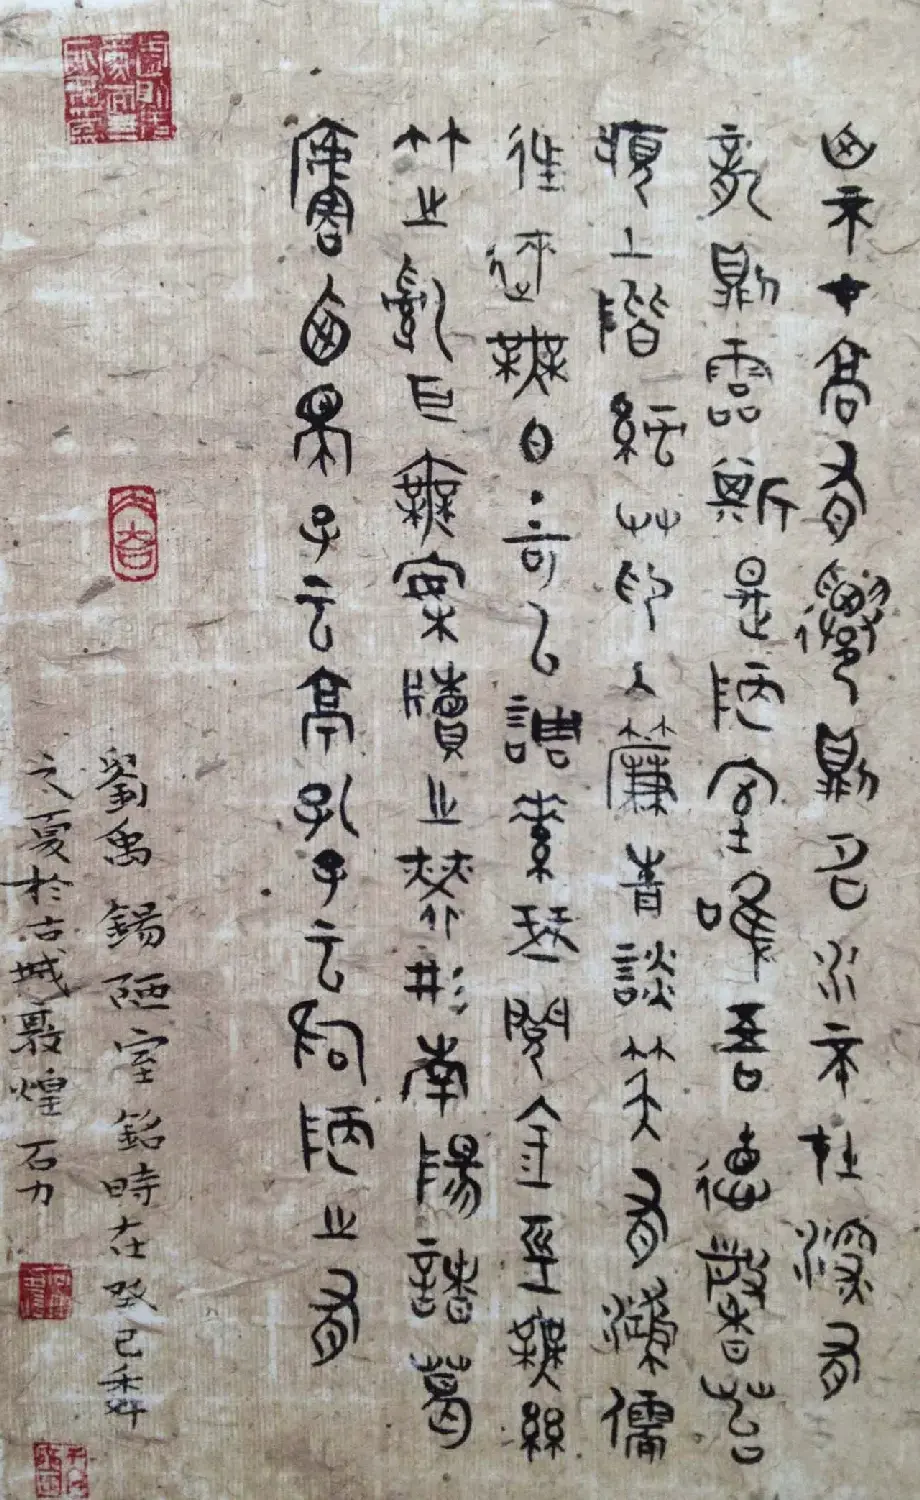 山不在高有僊則名水不在深有
龍則靈斯是陋室唯吾德馨苔
痕上階綠草色入簾青談笑有鴻儒
往來無白丁可以調素琴閱金經無絲
竹之亂耳無案牘之勞形南陽諸葛
廬西蜀子云亭孔子云何陋之有
劉禹錫陋室銘時在癸巳年
之夏於古城敦煌石力
大吉